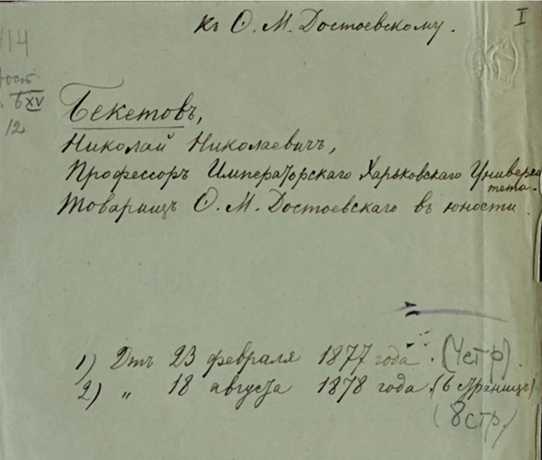 I
къ Ѳ. М. Достоевскому.
14
XV
12
Бекетовъ,
Николай Николаевичъ,
Профессоръ Императорскаго Харьковскаго Универси
тета.
Товарищъ Ѳ. М. Достоевскаго въ юности.
1) Отъ 23 февраля 1877 года. (4 стр).
2) „ 18 августа 1878 года. (6 страницъ)
(8 стр)